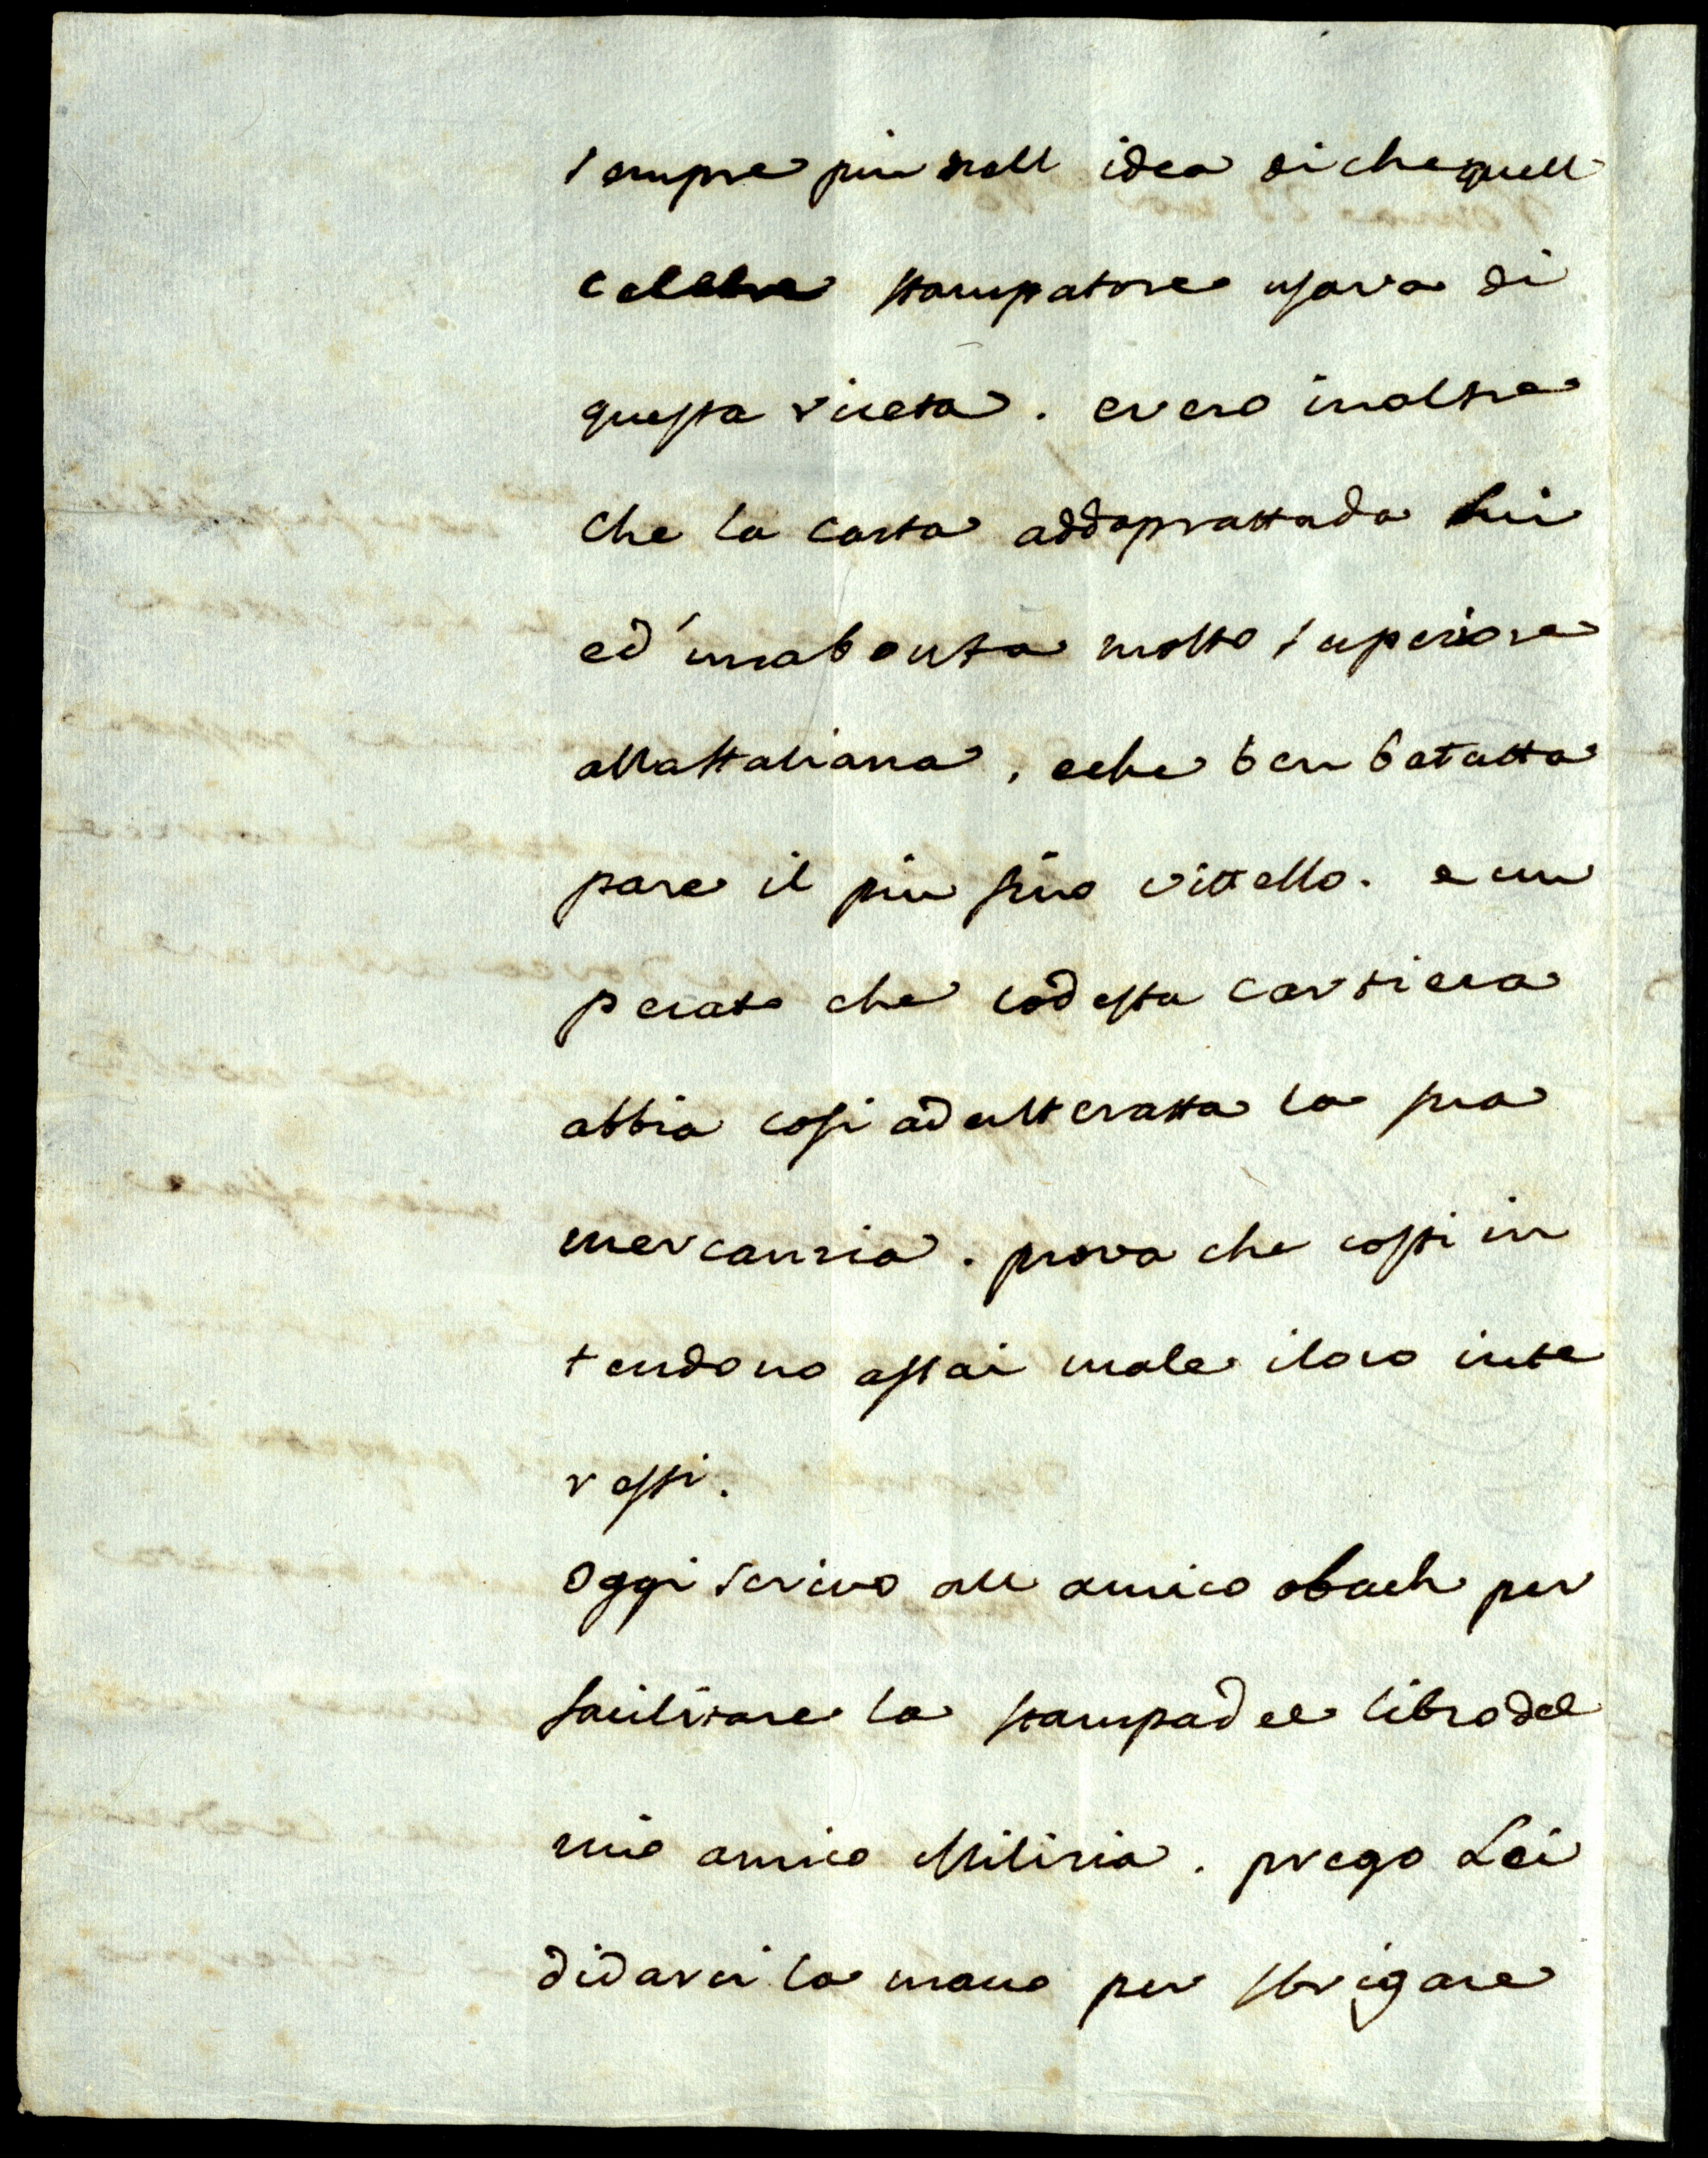 sempre piu nell idea di che quell
celebre stampatore usava di
questa riceta. evero inoltre
che la carta addoprattada lui
ed una bonta molto superiore
alla Ittaliana, eche ben batutta
pare il piu fino vittello. e un
pecato che codesta cartiera
abbia cosi adultteratta la sua
mercanzia. prova che cossi in
tendono assai male iloro inte
ressi.
Oggi scrivo all amico obach per
facilitare la stampa del libro del
mio amico Milizia. prego Lei
didarci la mano per sbrigare